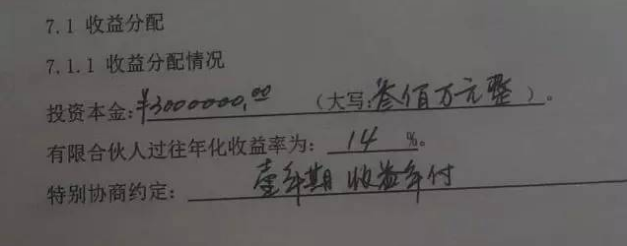 7.1 收益分配
7.1.1 收益分配情况
投资本金:¥3000000.00 (大写:叁佰万元整)。
有限合伙人过往年化收益率为: 14 %。
特别协商约定: 壹年期 收益年付